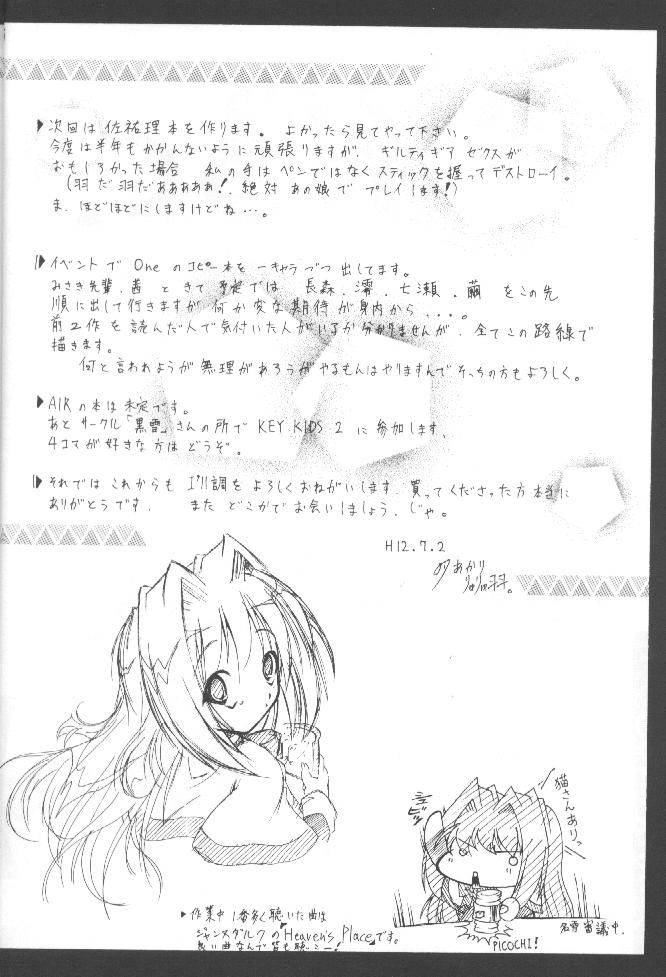 ▶次回は佐祐理本を作ります。よかったら見てやって下さい。
今度は半年もかかんないように頑張りますが、ギルティギア ゼクスが
おもしろかった場合 私の手はペンではなくスティックを握ってデストローイ。
(羽だ羽だあああああ!、絶対あの娘でプレイします!)
ま、ほどほどにしますけどね…。
▶イベントで Oneのコピー本を一キャラづつ出してます。
みさき先輩、茜 ときて 予定では、長森、澪、七瀬、繭 をこの先
順に出して行きますが 何か変な期待が身内から...。
前2作を読んだ人で気付いた人がいるか分かりませんが、全てこの路線で
描きます。
何と言われようが無理があろうがやるもんはやりますんでそっちの方もよろしく。
▶AIRの本は未定です。
あと サークル「黒雪」さんの所で KEY KIDS 2 に参加します。
4コマが好きな方は どうぞ。
▶それでは これからも I'll調を よろしくおねがいします。買ってくださった方本当に
ありがとうです. また どこかで お会いしましょう、じゃ。
H12.7.2
あかり
羽。
猫さんありっ
シュビッ
名雪審議中.
PICOCHI!
▶作業中 1番多く聴いた曲は
ジャンヌダルクの「Heaven's Place」です。
良い曲なんで皆も聴こー!